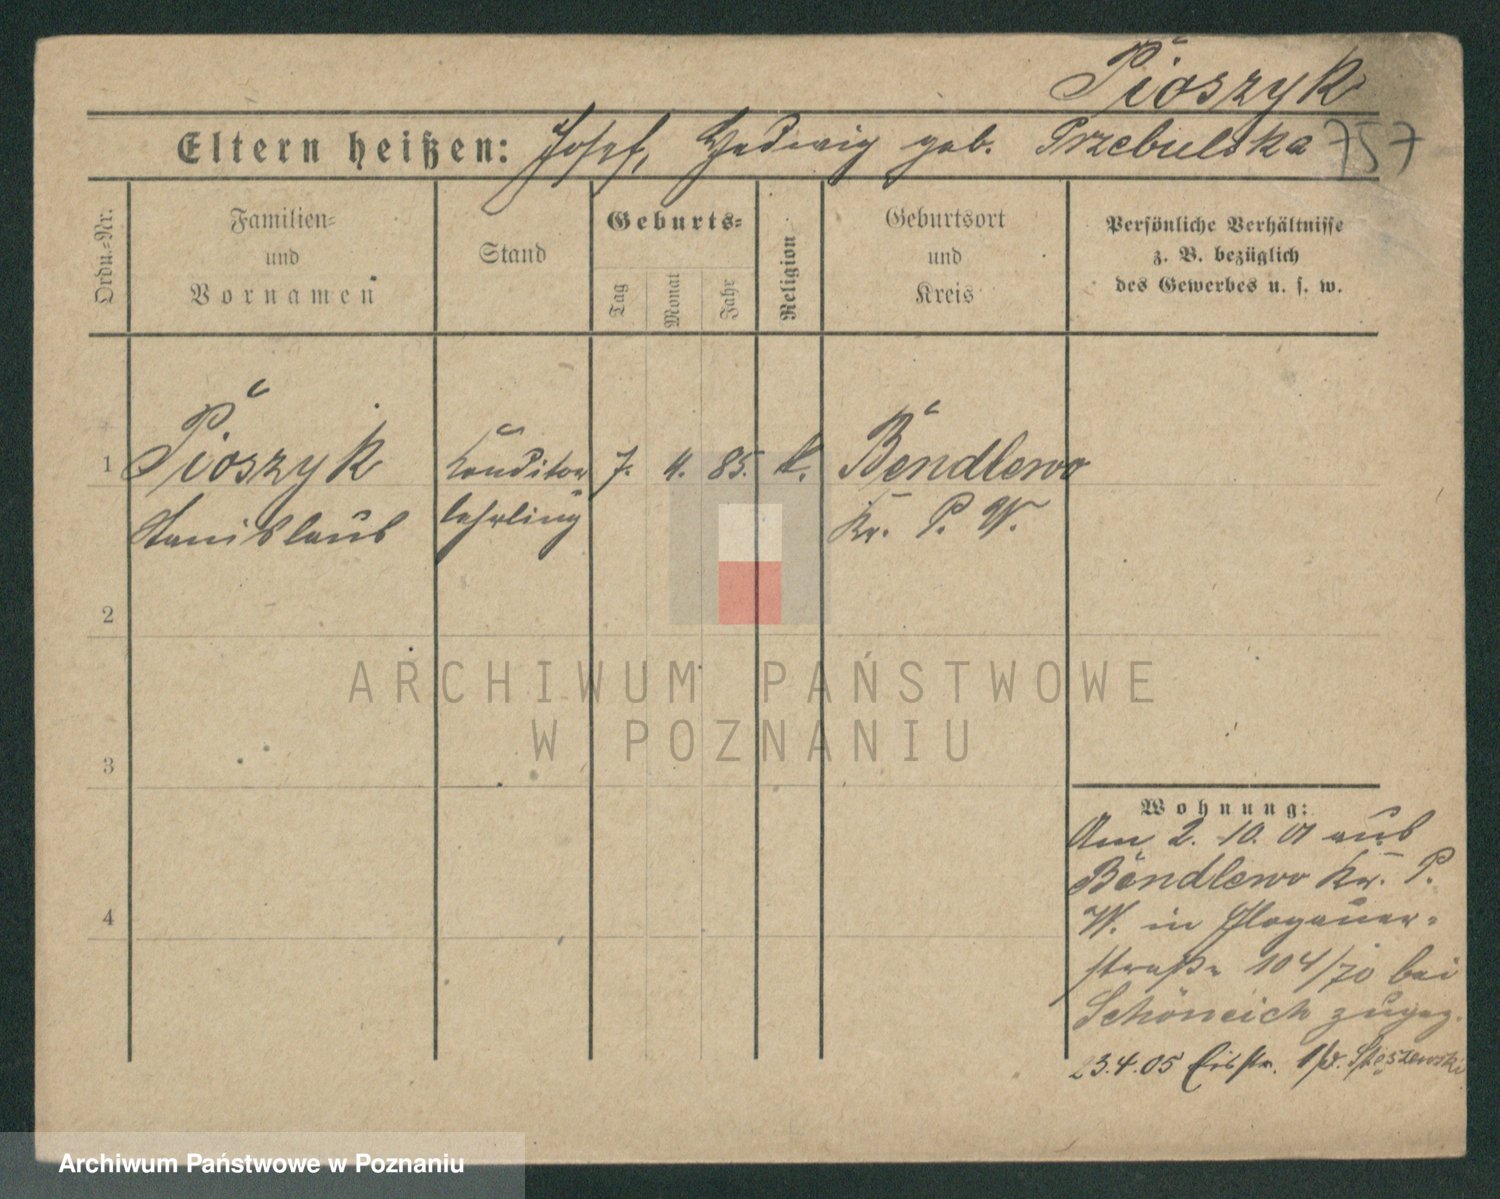 Pioszyk
Eltern heißen: Josef, Hedwig geb. Przebielska
757
Ordn.-Nr.
Familien-
und
Vornamen
Stand
Geburts-
Tag
Monat
Jahr
Religion
Geburtsort
und
Kreis
Persönliche Verhältnisse
z. B. bezüglich
des Gewerbes u. s. w.
1 Pioszyk Konditor 7. 4. 85. k. Bendlewo
Stanislaus lehrling Kr. P. W.
2
3
4
ARCHIWUM PAŃSTWOWE
W POZNANIU
Wohnung:
Am 2. 10. 01 aus
Bendlewo Kr. P.
W. in Glogauer-
straße 104/70 bei
Schöneich zugez.
23.4.05
Archiwum Państwowe w Poznaniu